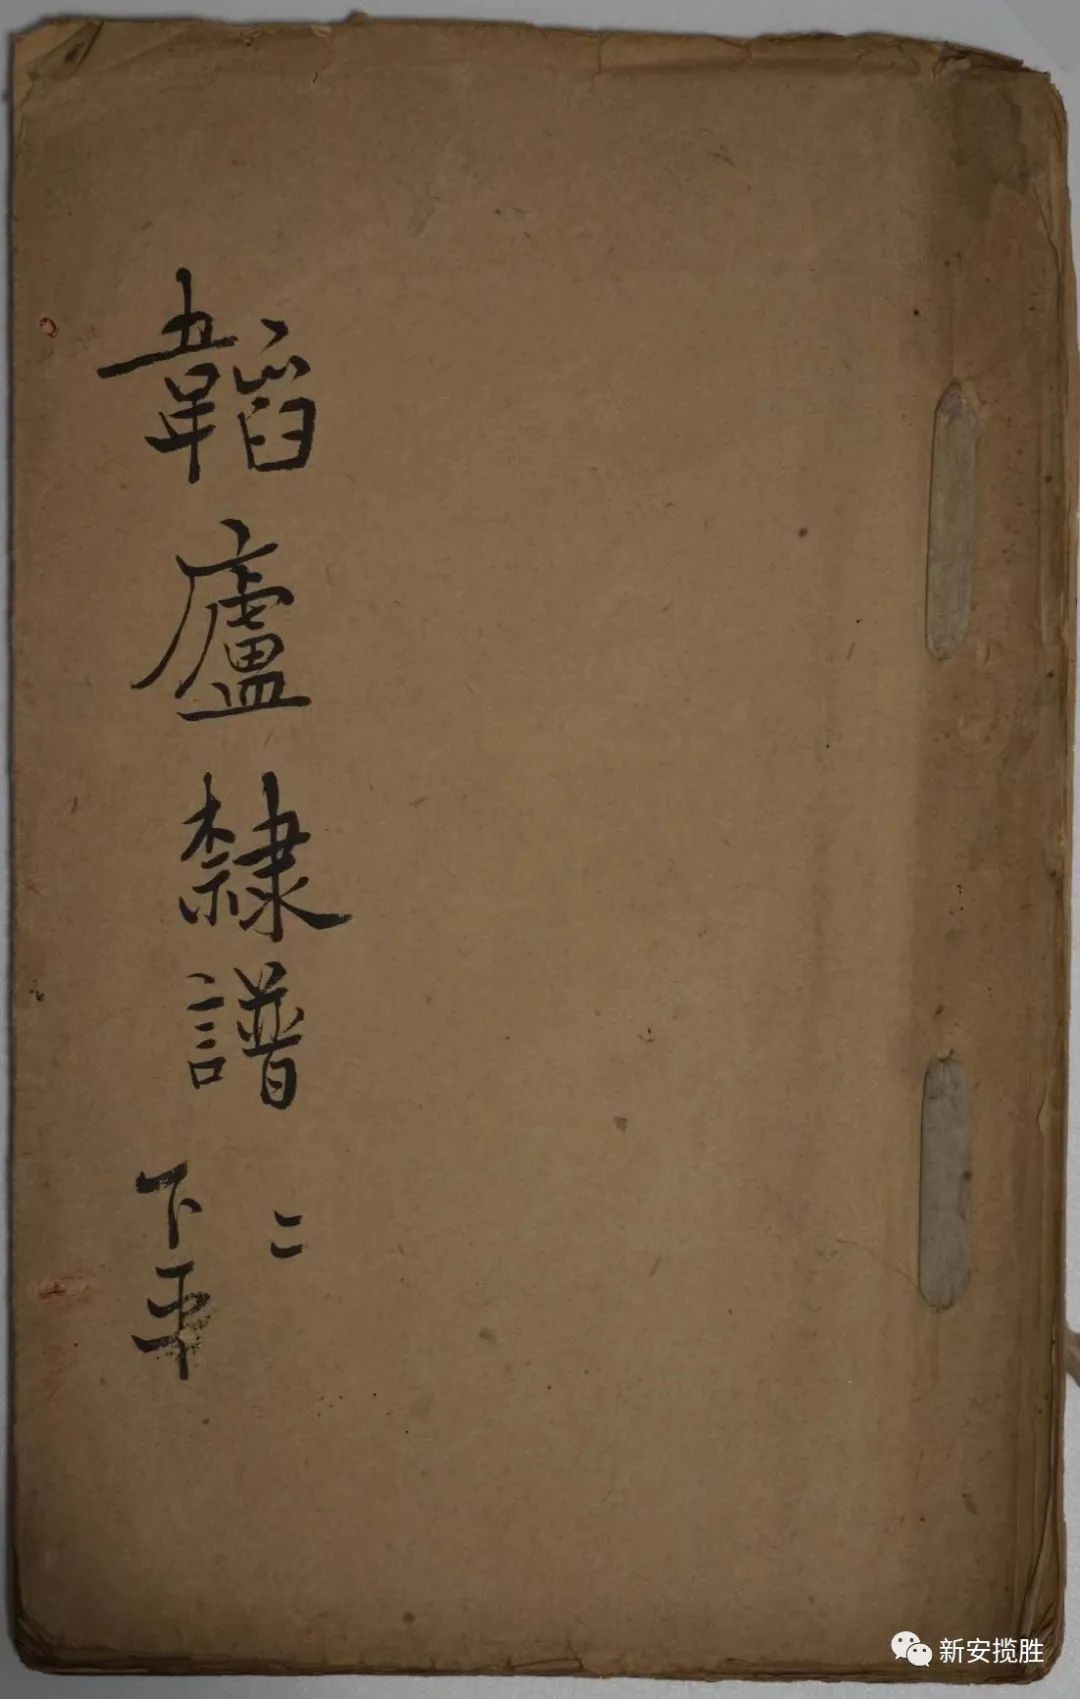 韜廬隸譜
二
下平
新安揽胜